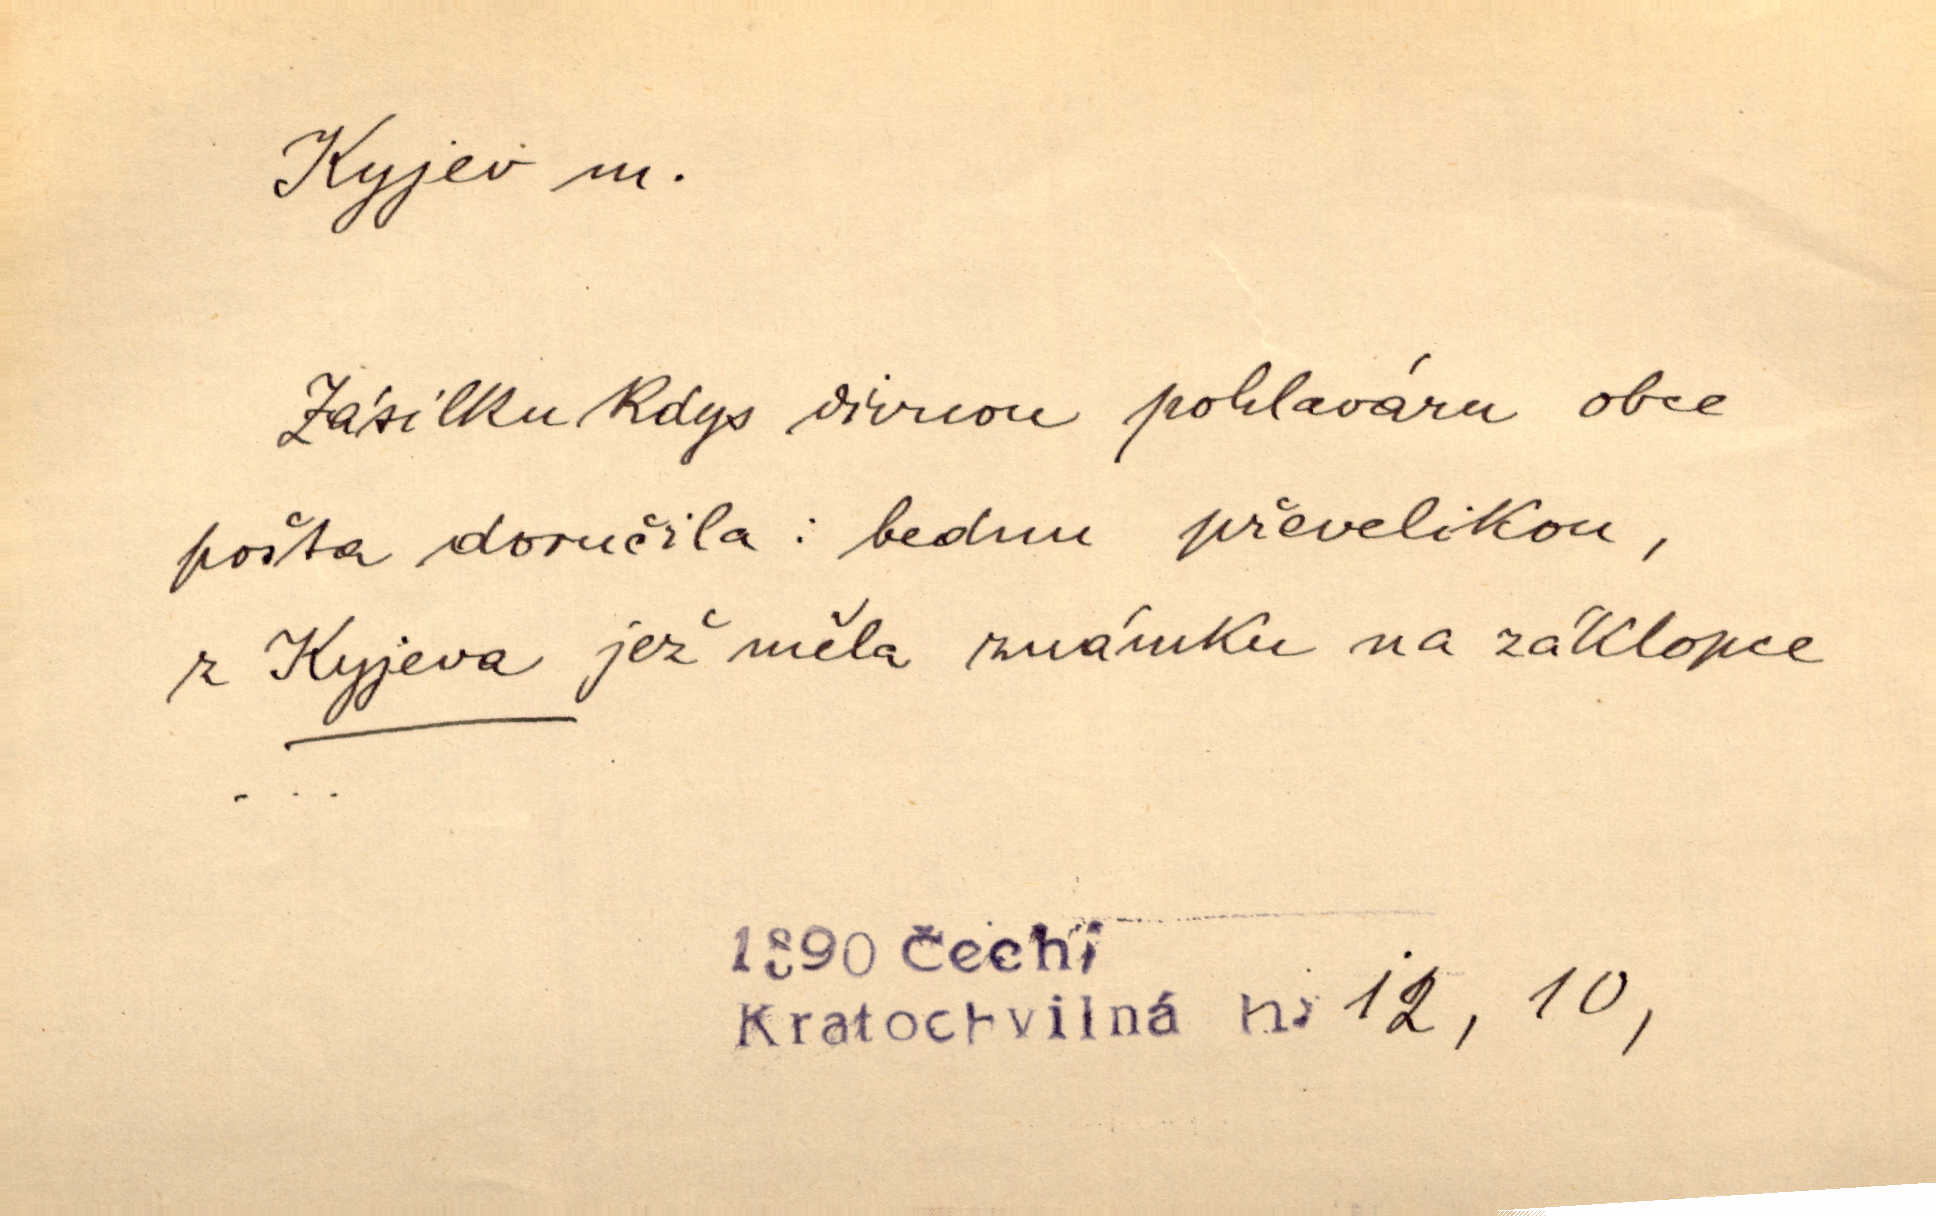 Kyjev m.
Zásilku kdys divnou pohlaváru obce
pošta doručila : bednu převelikou,
z Kyjeva jež měla známku na záklopce
. . .
1890 Čech
Kratochvilná h: 12, 10,